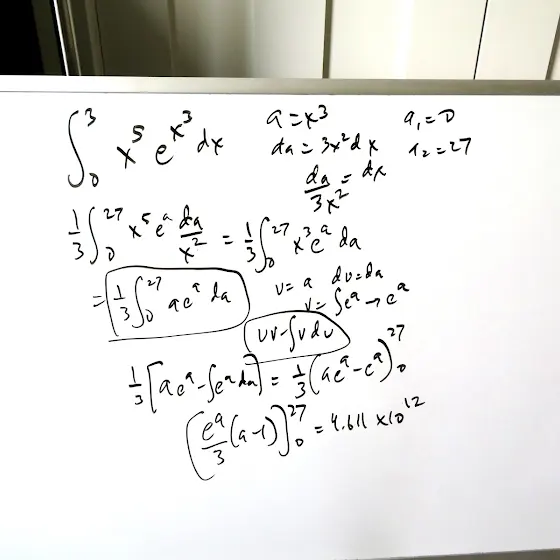 ∫₀³ x⁵ e^(x³) dx   a = x³   a₁ = 0
da = 3x² dx   a₂ = 27
da/3x² = dx
1/3 ∫₀²⁷ x⁵ eᵃ da/x² = 1/3 ∫₀²⁷ x³ eᵃ da
= 1/3 ∫₀²⁷ a eᵃ da   u = a   du = da
v = ∫eᵃ → eᵃ
uv - ∫v du
1/3 [a eᵃ - ∫eᵃ da] = 1/3 (a eᵃ - eᵃ)₀²⁷
[eᵃ/3 (a - 1)]₀²⁷ = 4.611 × 10¹²